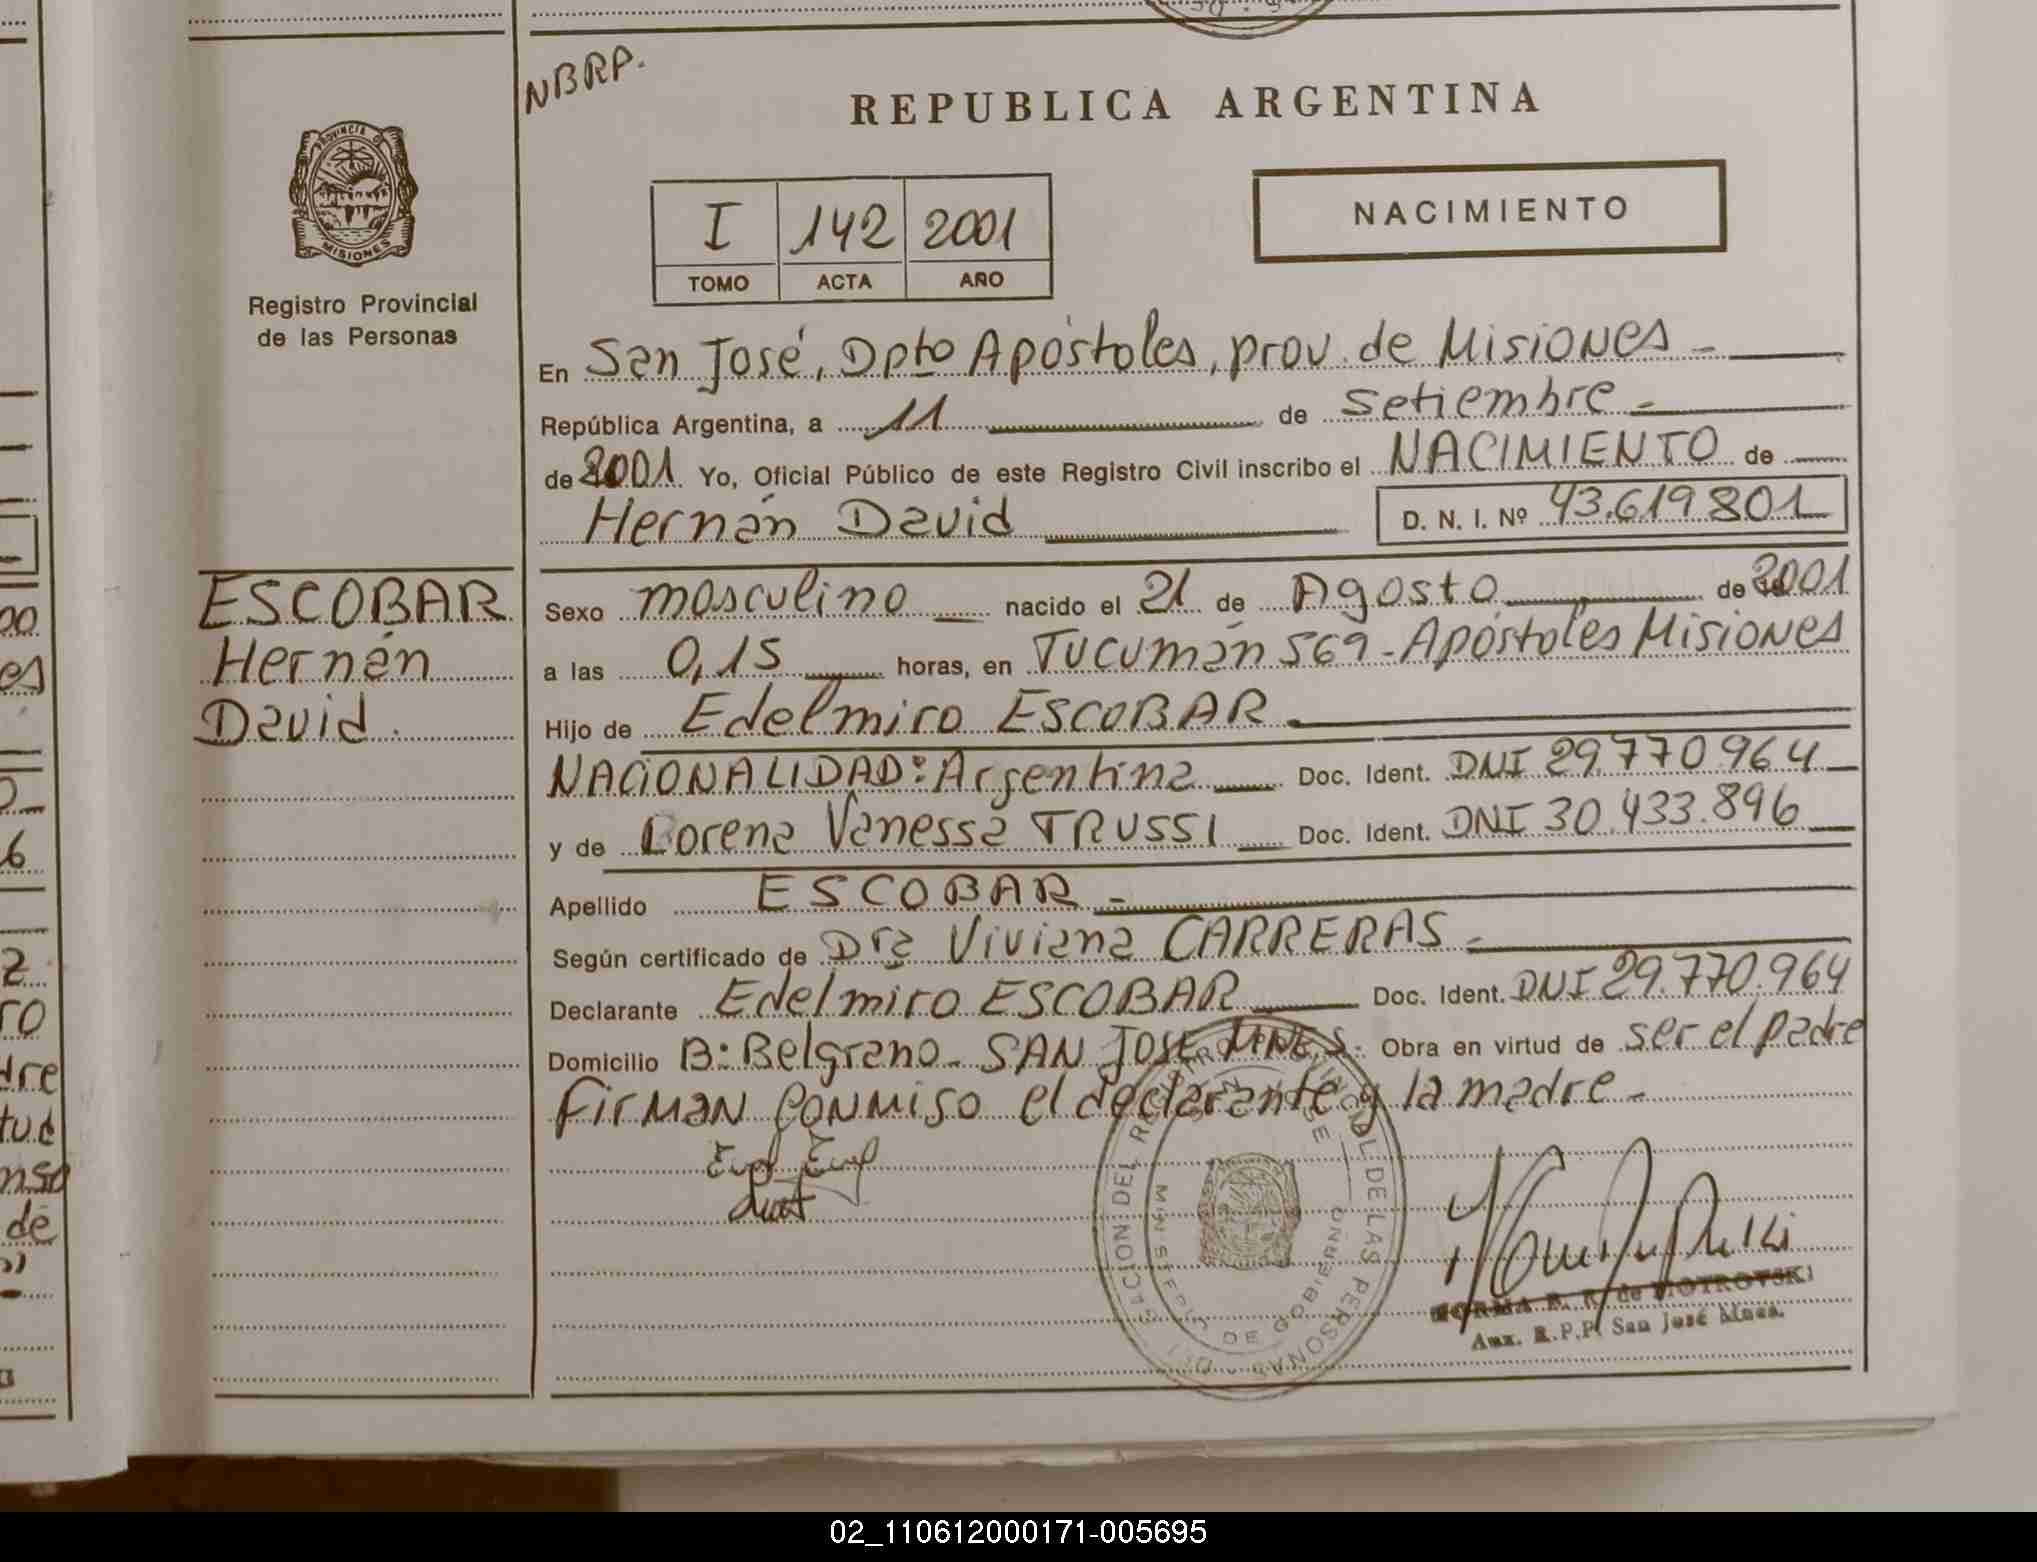 NBRP.
REPUBLICA ARGENTINA
PROVINCIA DE
MISIONES
Registro Provincial
de las Personas
I 142 2001
TOMO ACTA AÑO
NACIMIENTO
En San José, Dpto Apóstoles, prov. de Misiones -
República Argentina, a 11 de Setiembre -
de 2001 Yo, Oficial Público de este Registro Civil inscribo el NACIMIENTO de
Hernán David D. N. I. Nº 43.619.801
ESCOBAR
Hernán
David.
Sexo masculino nacido el 21 de Agosto de 2001
a las 0,15 horas, en Tucumán 569 - Apóstoles Misiones
Hijo de Edelmiro ESCOBAR
NACIONALIDAD: Argentina Doc. Ident. DNI 29.770.964
y de Lorena Vanessa TRUSSI Doc. Ident. DNI 30.433.896
Apellido ESCOBAR -
Según certificado de Dra Viviana CARRERAS -
Declarante Edelmiro ESCOBAR Doc. Ident. DNI 29.770.964
Domicilio B: Belgrano - SAN JOSE MNES. Obra en virtud de ser el padre
Firman conmigo el declarante y la madre -
DE LAS PERSONAS
DE GOBIERNO
NORMA B. K. de PIOTROVSKI
Aux. R.P.P. San José Mnes.
02_110612000171-005695